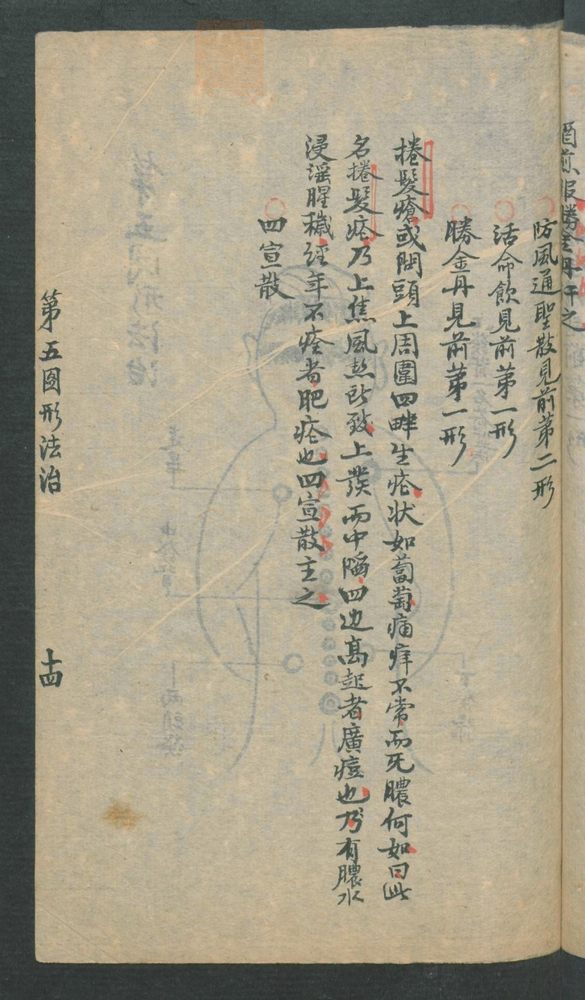 酒煎服勝金丹干之
防風通聖散見前第二形
活命飲見前第一形
勝金丹見前第一形
捲髮瘡或問頭上周圍四畔生瘡状如蔔萄痛痒不常而无膿何如曰此
名捲髮瘡乃上焦風热所致上發而中陷四边高起者廣痘也乃有膿水
浸滛腥穢经年不痊者肥瘡也四宣散主之
四宣散
第五图形法治
十四